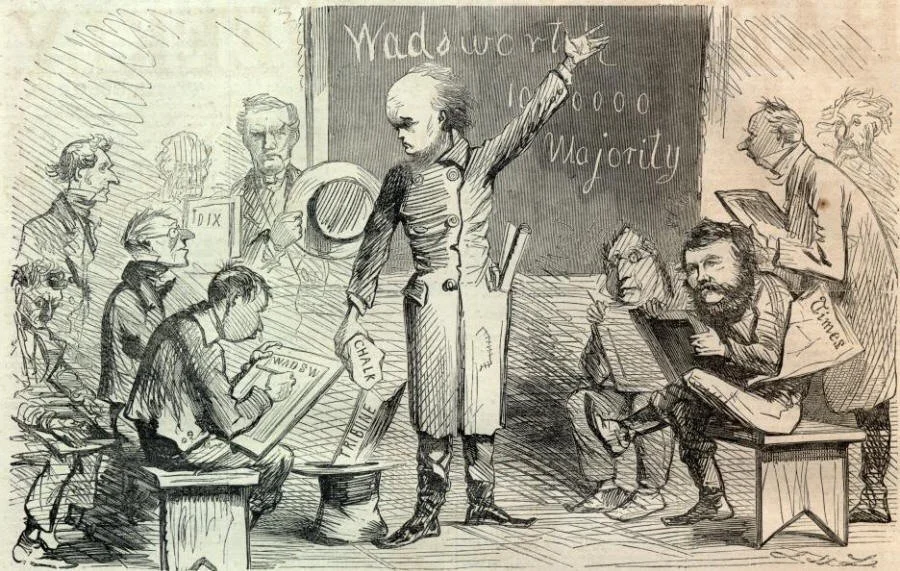 Wadsworth
100,0000
Majority
DIX
WADSW
CHALK
TRIBUNE
Times